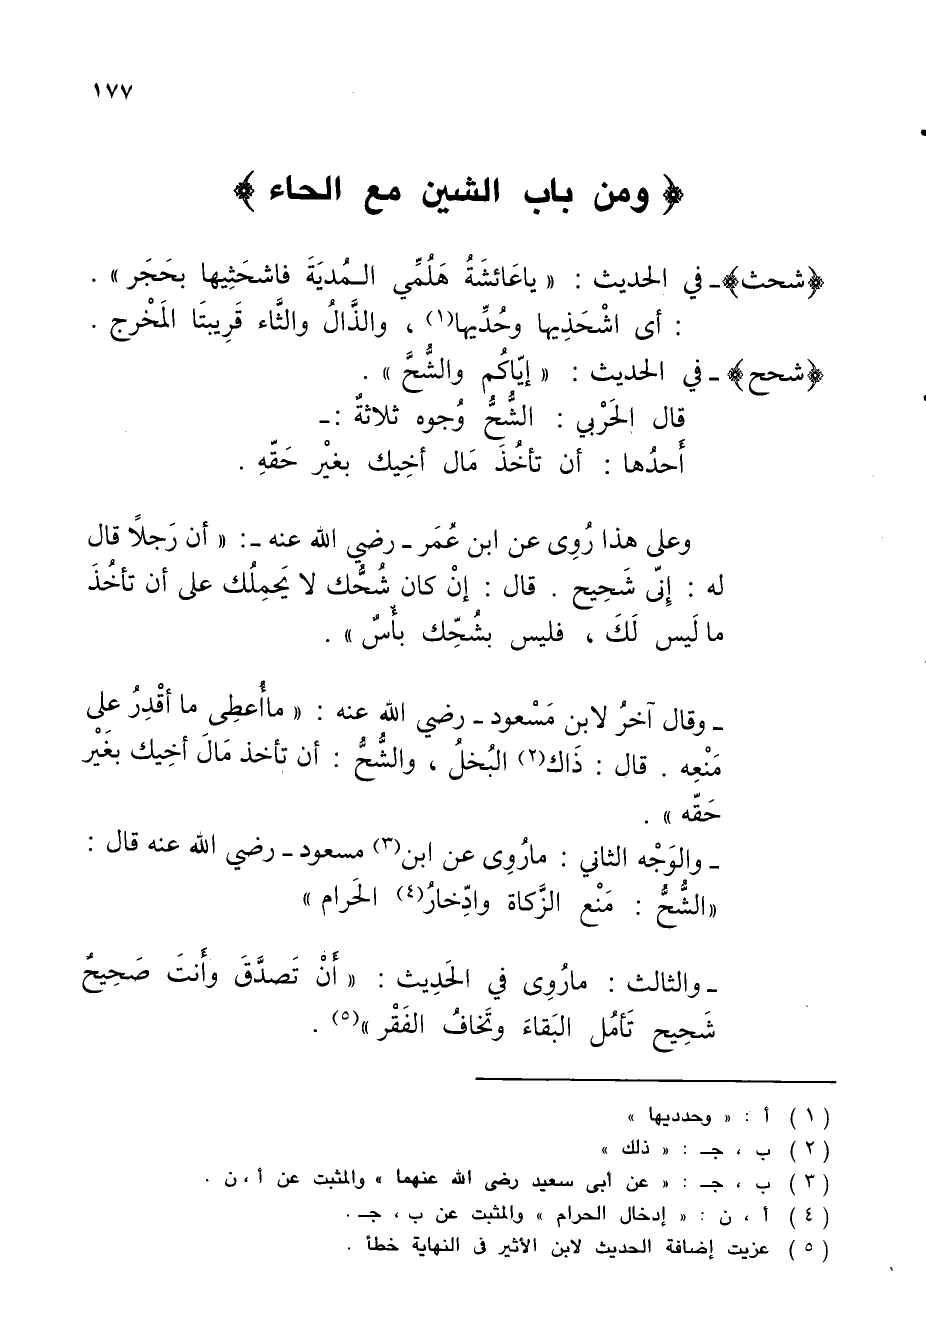 ١٧٧
﴿ ومن باب الشين مع الحاء ﴾
﴿شحث﴾ـ في الحديث : « ياعَائشَةُ هَلُمِّي المُديَةَ فاشحَثِيها بحَجَر » .
: أى اشْحَذِيها وحُدِّيها(١) ، والذَّالُ والثَّاء قَرِيبتَا المَخْرج .
﴿شحح﴾ـ في الحديث : « إيّاكُم والشُّحَّ » .
قال الحَرْبي : الشُّحُّ وُجوه ثلاثةٌ :ـ
أَحدُها : أن تأخُذَ مَال أخِيك بغيْر حَقّهِ .
وعلى هذا رُوِى عن ابن عُمَر ـ رضي الله عنه ـ: « أن رَجلًا قال
له : إِنّى شَحِيح . قال : إنْ كان شُحُّك لا يَحمِلُك على أن تأخُذَ
ما لَيس لَكَ ، فليس بشُحِّك بأْسٌ » .
ـ وقال آخرُ لابن مَسْعود ـ رضي الله عنه : « ماأُعطِى ما أقْدِرُ على
مَنْعِه . قال : ذَاك(٢) البُخلُ ، والشُّحُّ : أن تأخذ مَالَ أخِيك بغَيْر
حَقّه » .
ـ والوَجْه الثاني : مارُوِى عن ابن(٣) مسعود ـ رضي الله عنه قال :
«الشُّحُّ : مَنْع الزَّكاة وادِّخارُ(٤) الحَرام »
ـ والثالث : مارُوِى في الحَدِيث : « أَنْ تَصدَّقَ وأَنتَ صَحِيحٌ
شَحِيح تَأمُل البَقاءَ وتَخافُ الفَقْر »(٥) .
(١) أ : « وحدديها »
(٢) ب ، جـ : « ذلك »
(٣) ب ، جـ : « عن أبى سعيد رضى الله عنهما » والمثبت عن أ ، ن .
(٤) أ ، ن : « إدخال الحرام » والمثبت عن ب ، جـ .
(٥) عزيت إضافة الحديث لابن الأثير فى النهاية خطأ .